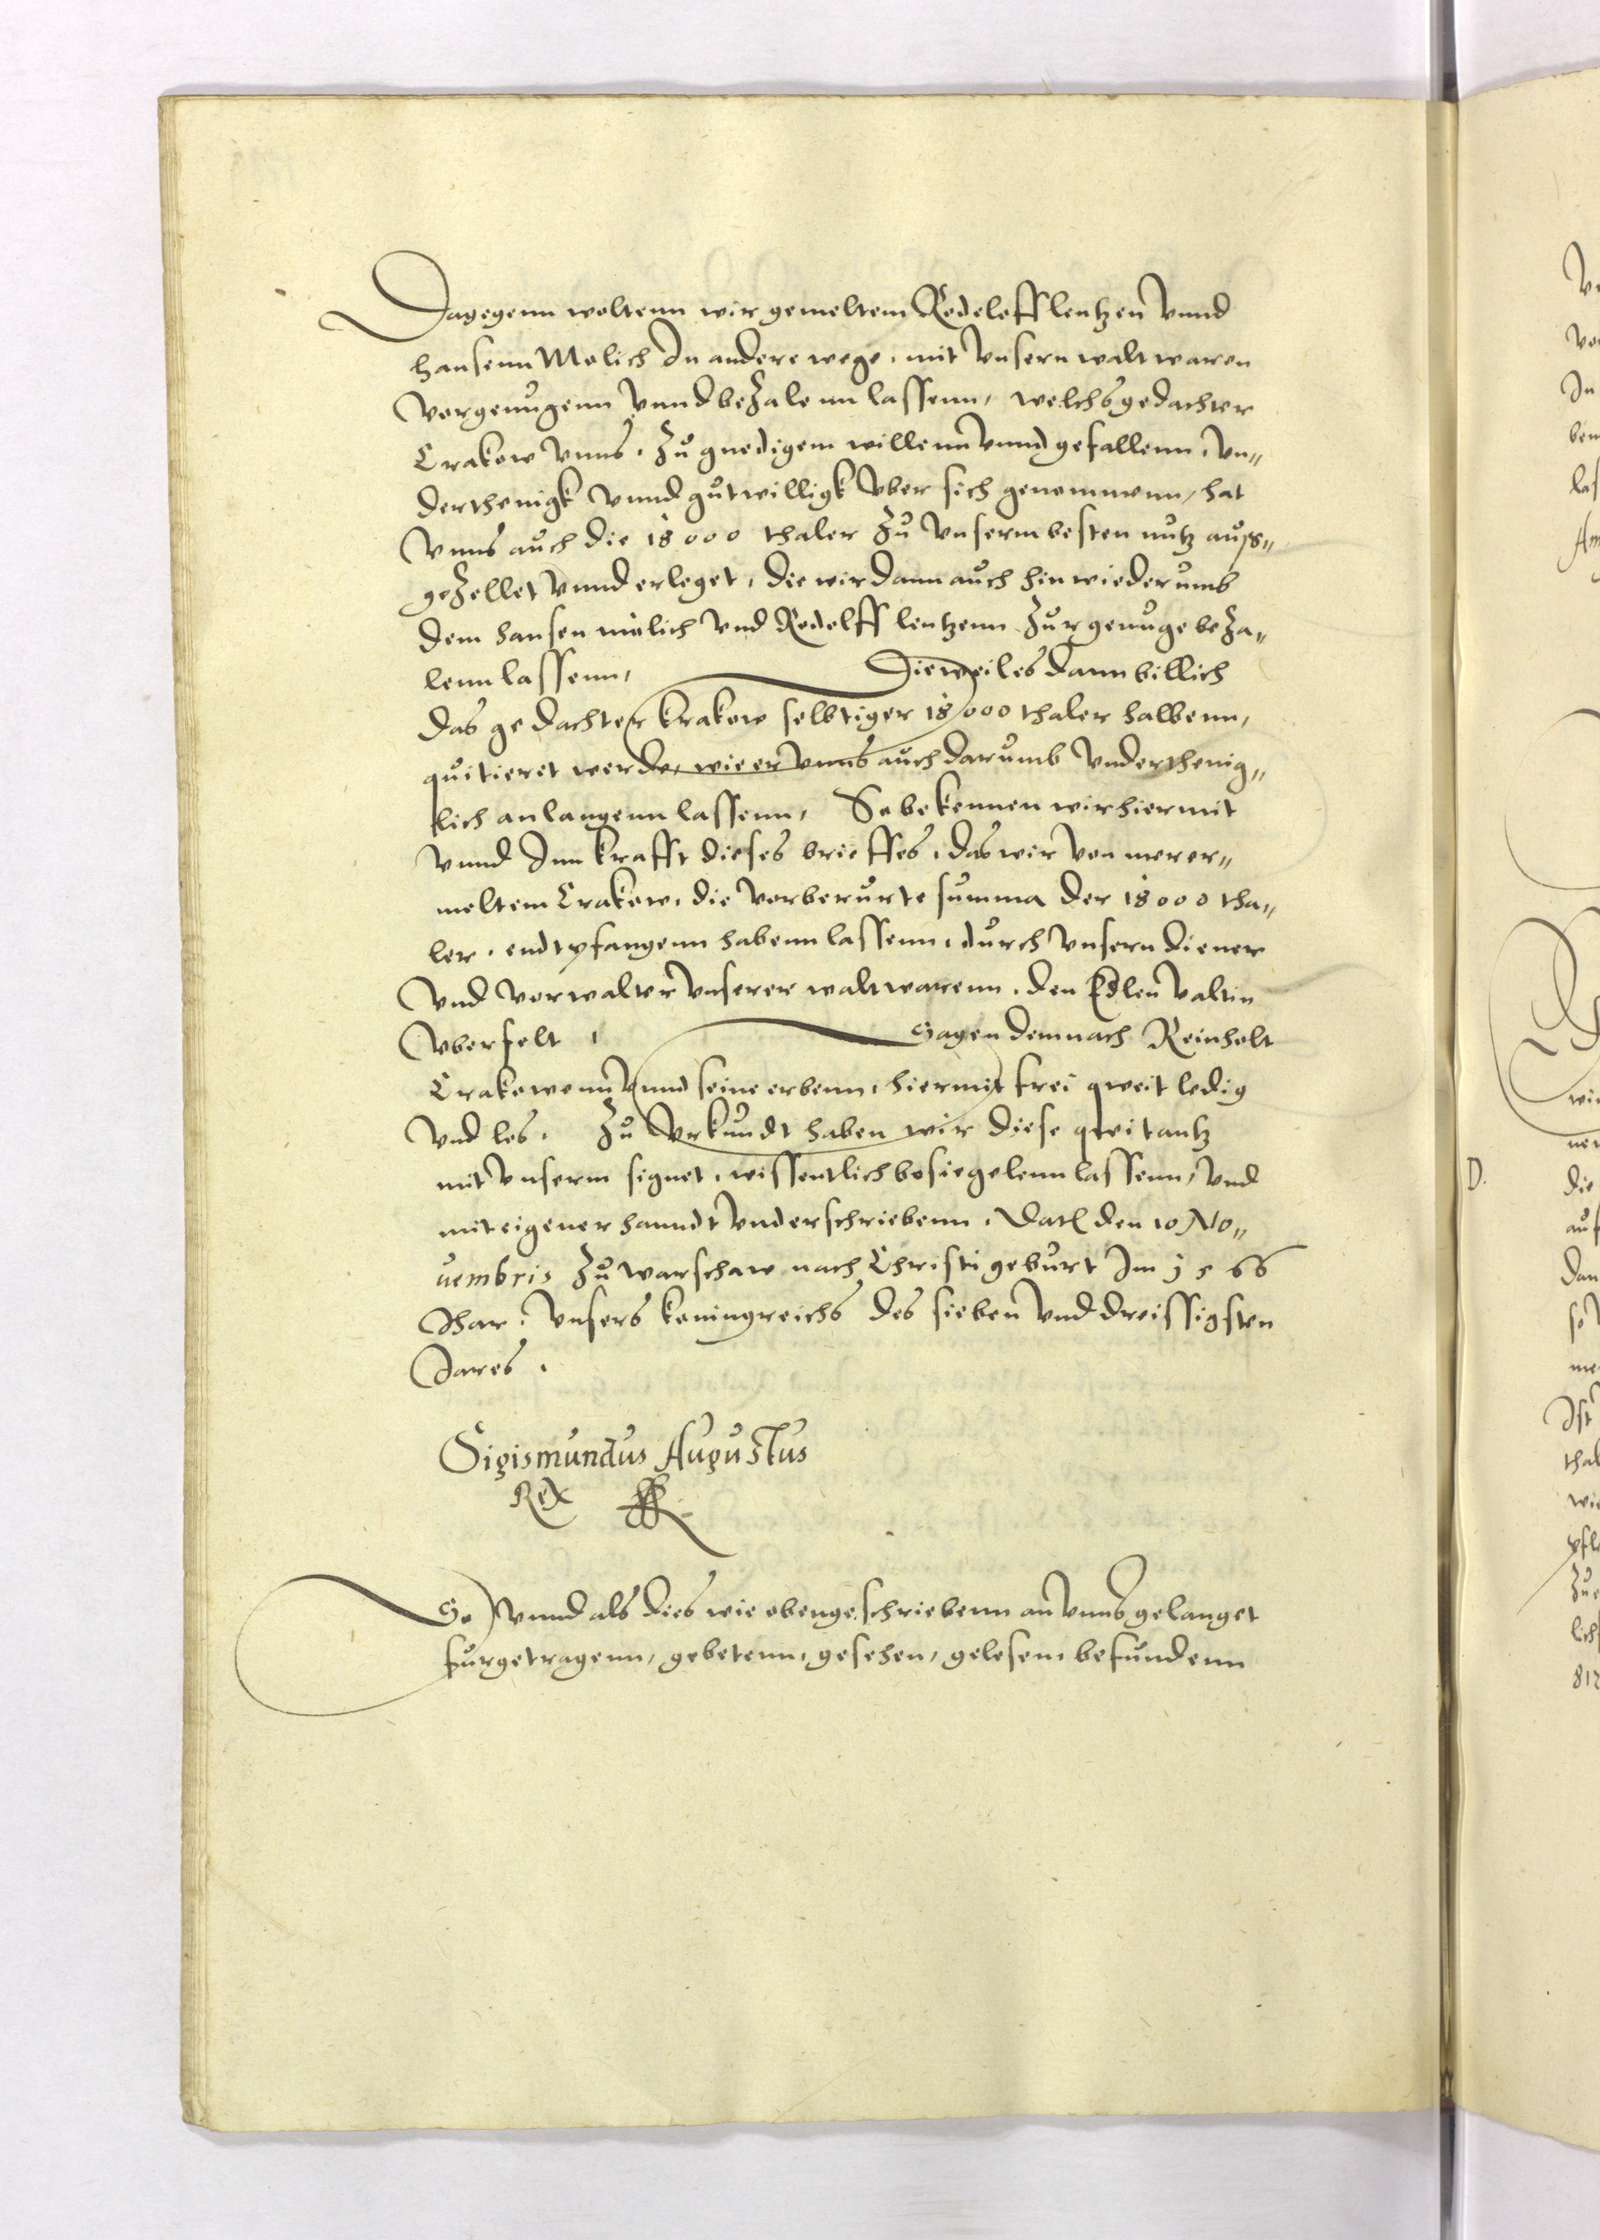 Dagegenn woltenn wir gemeltem Rodeloff lentzen vnnd
hansenn Molich In andere wege, mit vnsern walt waren
vorgenugenn vnnd bezalenn lassenn, welchs gedachter
Crakow vnns, zu gnedigem willenn vnnd gefallenn, vn„
derthenigk vnnd gutwilligk vber sich genommenn, hat
vnns auch die 18000 thaler zu vnserm besten nutz aufs„
gezellet vnnd erleget, die wir dann auch hinwiederumb
dem hansen mölich vnd Rodolff lentzenn zur genuge beza„
lenn lassenn, Dieweil es dann billich
das gedachter krakow selbtiger 18000 thaler halbenn,
quitieret werde, wie er vnns auch darumb vnderthenig„
lich anlangenn lassenn, So bekennen wir hiermit
vnnd Inn krafft dieses brieffes, das wir von merer„
meltem Crakow, die vorberurte summa der 18000 tha„
ler, endtpfangenn habenn lassenn, durch vnsern diener
vnd vorwalter vnserer waltwarenn, den Edlen valtin
vberfelt, Sagen demnach Reinholt
Crakowenn vnnd seine erbenn, hiermit frei qweit ledig
vnd los. Zu vrkundt haben wir diese qwitantz
mit vnserm signet, wissentlich besiegelenn lassenn, vnd
mit eigener hanndt vnderschriebenn. Datl den 10 No„
uembris zu warschaw nach Christi geburt Im 1566
Ihar, vnsers koningreichs des sieben vnd dreissigsten
Jares.
Sigismundus Augustus
Rex
So vnnd als dies wie obengeschriebenn an vnns gelanget
furgetragenn, gebetenn, gesehen, gelesenn befundenn
D.